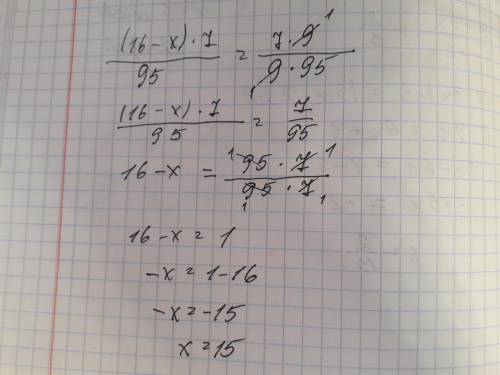 (16 - x) · 7 / 95 = 7 · 9 1 / 1 9 · 95
(16 - x) · 7 / 95 = 7 / 95
16 - x = 1 95 · 7 1 / 95 1 · 7 1
16 - x = 1
-x = 1 - 16
-x = -15
x = 15